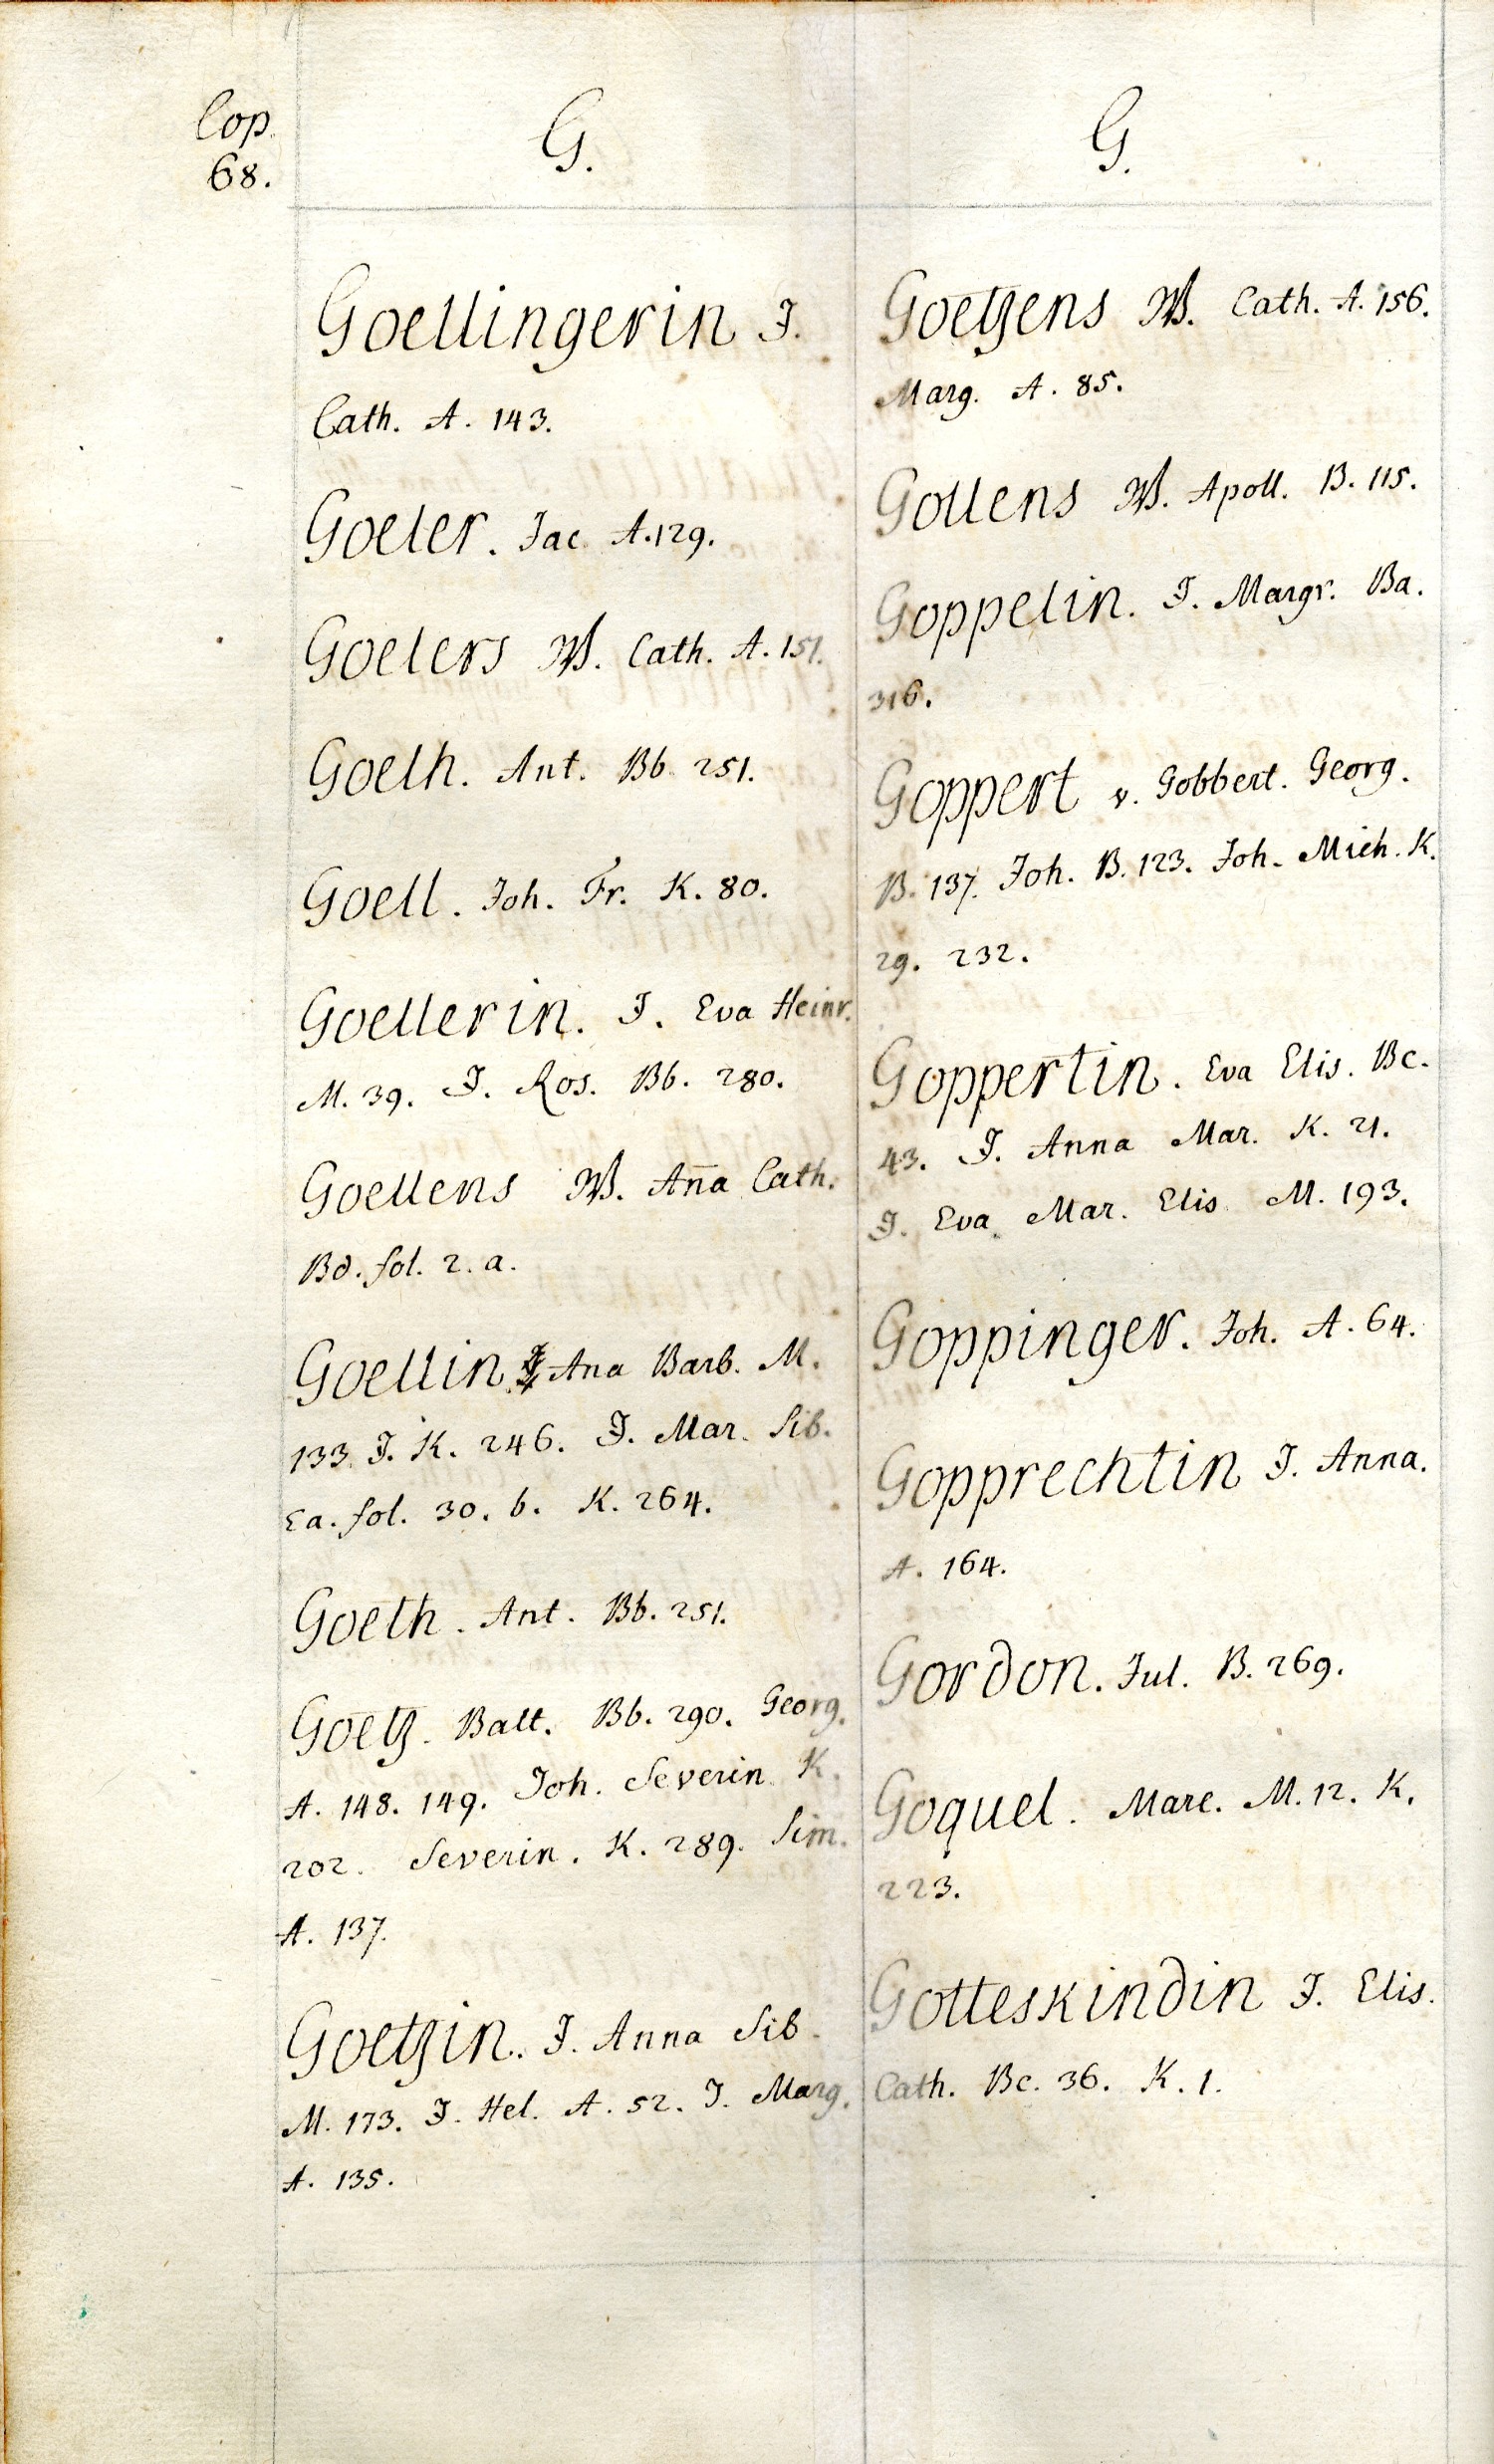 Cop.
68.
G.
Goellingerin J.
Cath. A. 143.
Goeler. Jac A. 129.
Goelers W. Cath. A. 151.
Goelh. Ant. Bb. 251.
Goell. Joh. Fr. K. 80.
Goellerin. J. Eva Heinr.
M. 39. J. Ros. Bb. 280.
Goellens W. Aña Cath.
Bd. fol. 2. a.
Goellin J. Ana Barb. M.
133. J. K. 246. J. Mar. Sib.
Ea. fol. 30. b. K. 264.
Goeth. Ant. Bb. 251.
Goetz. Balt. Bb. 290. Georg.
A. 148. 149. Joh. Severin K.
202. Severin. K. 289. Sim.
A. 137.
Goetzin. J. Anna Sib.
M. 173. J. Hel. A. 52. J. Marg.
A. 135.
G.
Goetzens W. Cath. A. 156.
Marg. A. 85.
Gollens W. Apoll. B. 115.
Goppelin. J. Margr. Ba.
316.
Goppert v. Gobbert. Georg.
B. 137. Joh. B. 123. Joh. Mich. K.
29. 232.
Goppertin. Eva Elis. Bc.
43. J. Anna Mar. K. 21.
J. Eva Mar. Elis. M. 193.
Goppinger. Joh. A. 64.
Gopprechtin J. Anna.
A. 164.
Gordon. Jul. B. 269.
Goquel. Marc. M. 12. K.
223.
Gotteskindin J. Elis.
Cath. Bc. 36. K. 1.